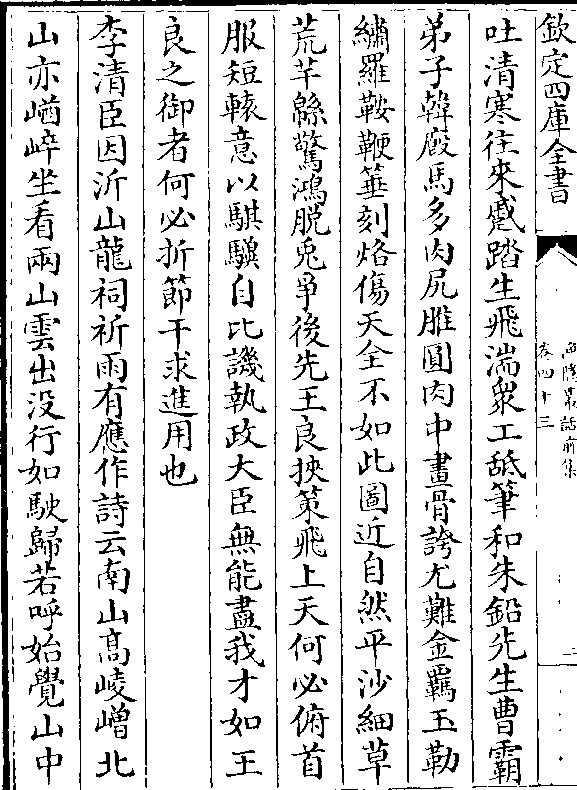 欽定四庫全書
卷四十三
吐清寒往來蹙踏生飛湍衆工舐筆和朱鉛先生曹霸
弟子韓廐馬多肉尻脽圓肉中畫骨誇尤難金羈玉勒
繡羅鞍鞭箠刻烙傷天全不如此圖近自然平沙細草
荒芊緜驚鴻脱兎爭後先王良挾策飛上天何必俯首
服短轅意以騏驥自比譏執政大臣無能盡我才如王
良之御者何必折節干求進用也
李清臣因沂山龍祠祈雨有應作詩云南山髙崚嶒北
山亦崷崪坐看兩山雲出没行如駛歸若呼始覺山中